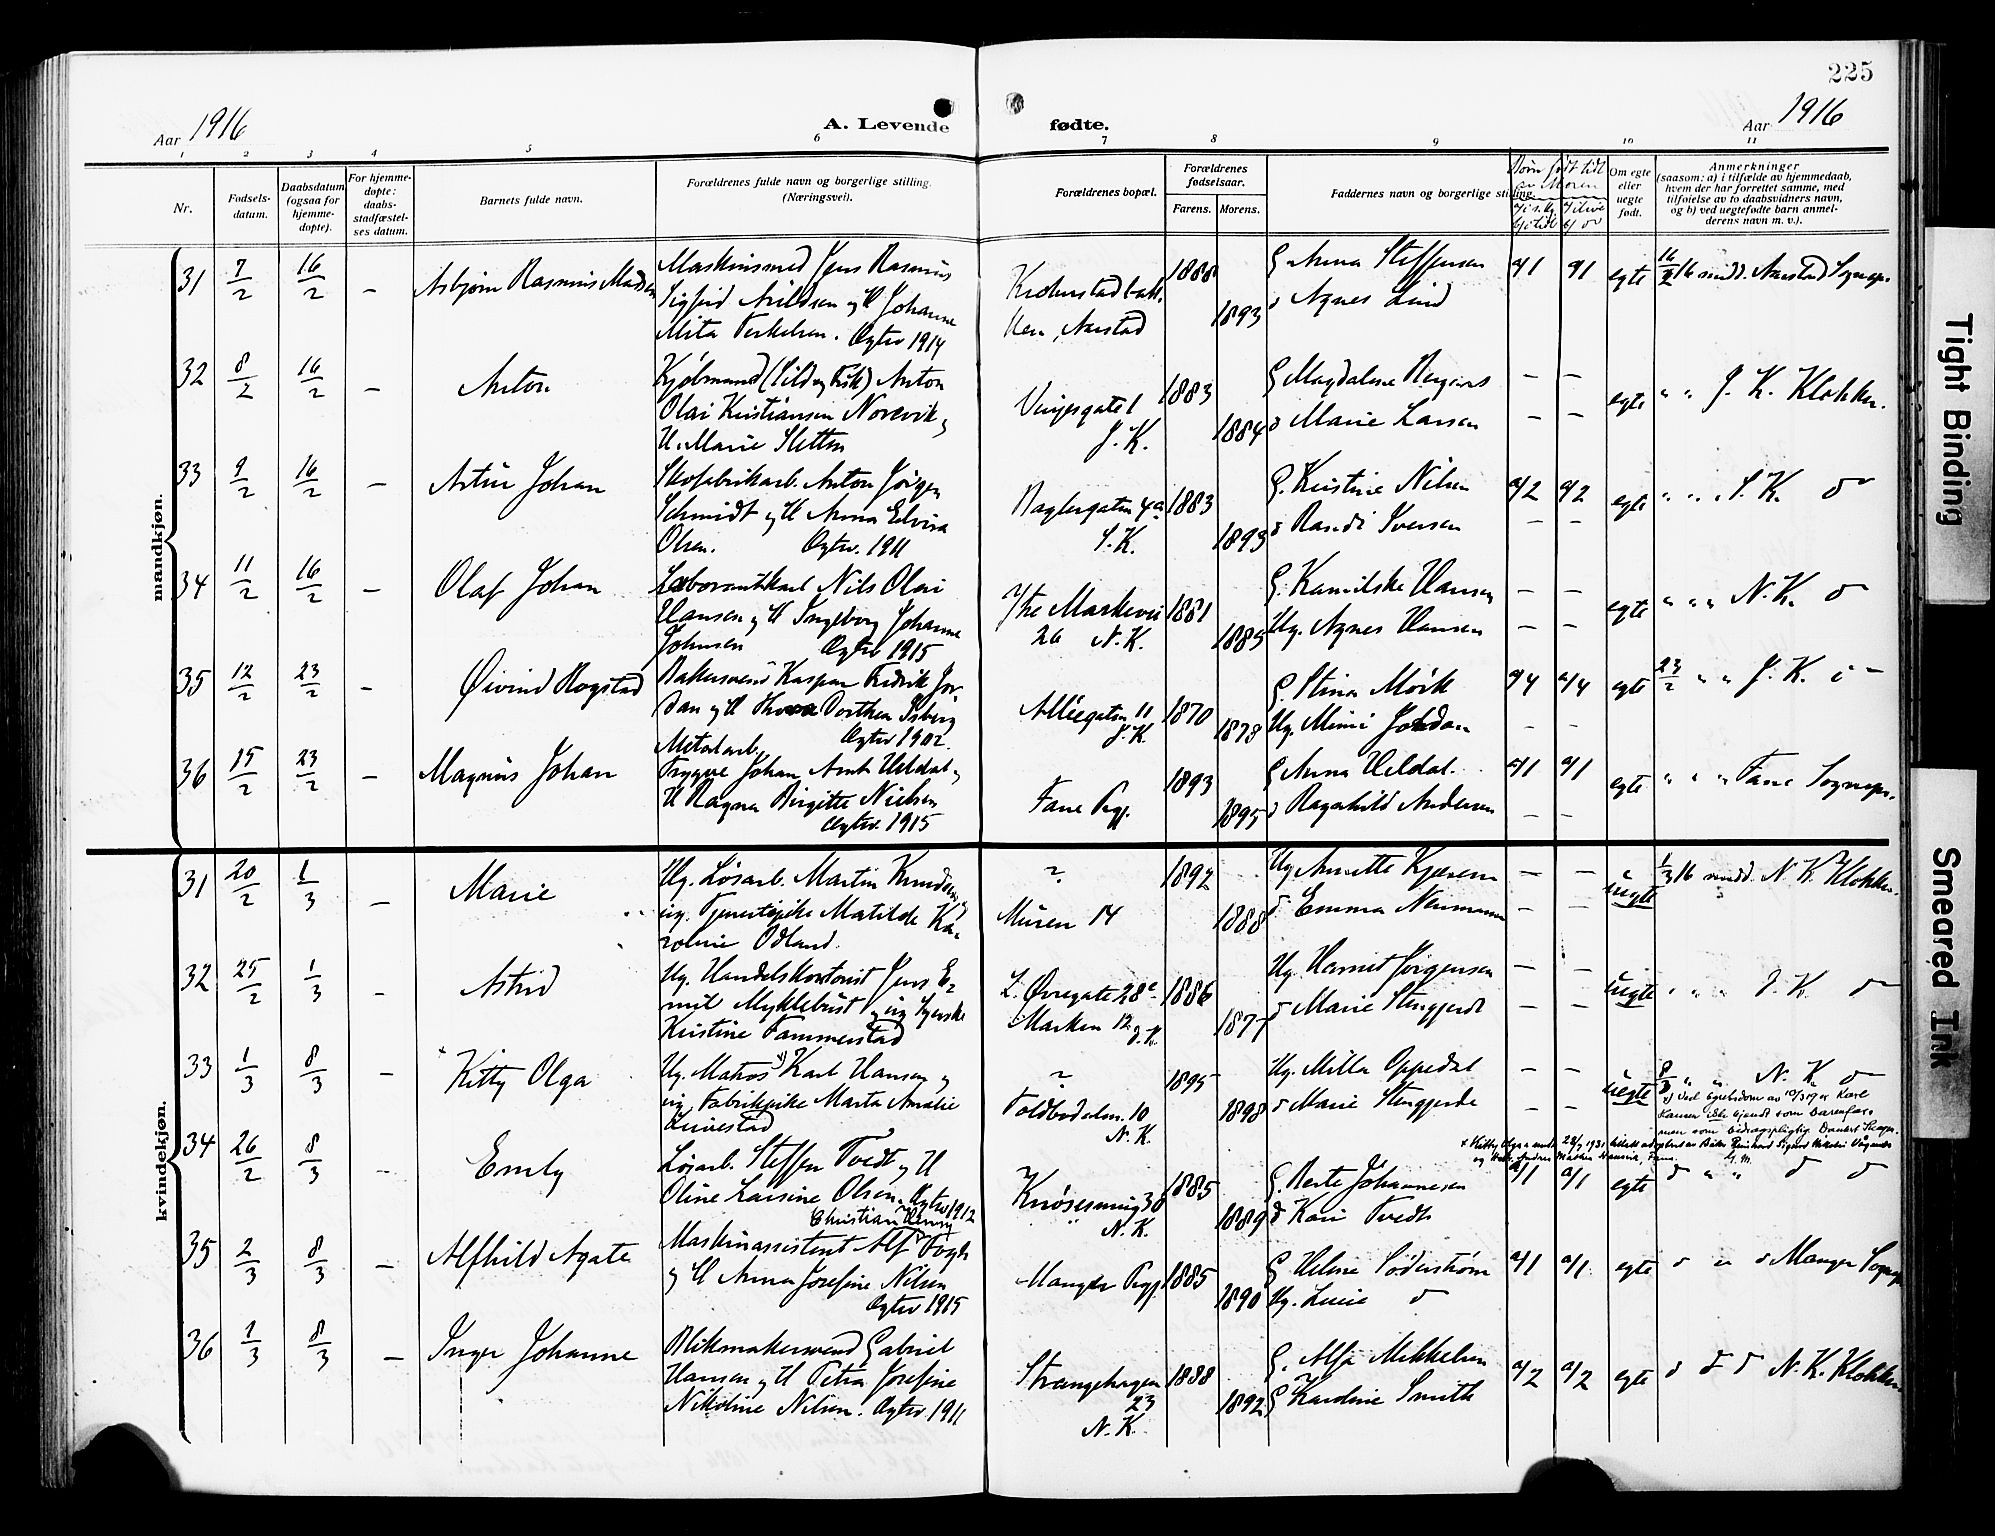 225
Aar 1916
A. Levende fødte.
Aar 1916
1 2 3 4 5 6 7 8 9 10 11
Nr.
Fødsels-
datum.
Daabsdatum
(ogsaa for
hjemme-
døpte).
For hjemme-
døpte:
daabs-
stadfæstel-
ses datum.
Barnets fulde navn.
Forældrenes fulde navn og borgerlige stilling.
(Næringsvei).
Forældrenes bopæl.
Forældrenes
fødselsaar.
Farens. Morens.
Faddernes navn og borgerlige stilling.
Børn født tidl
av Moren
Om egte
eller
uegte
født.
Anmerkninger
(saasom: a) i tilfælde av hjemmedaab,
hvem der har forrettet samme, med
tilføielse av to daabsvidners navn,
og b) ved uegtefødte barn anmel-
derens navn m. v.).
mandkjøn.
31 7/2 16/2 – Asbjørn Rasmus Madsen
Maskinsmed Jens Rasmus
Sigfrid Arildsen og H Johanne
Mita Terkelsen. Egtev 1914
Aarstad
1888 1893
G Anna Steffensen
d Agnes Lind
a/1 a/1 egte 16/2 16 midd. Aarstad Sognepr.
32 8/2 16/2 – Anton
Kjøbmand (Sild og Fisk) Anton
Olai Kristiansen Norevik og
H. Marie Sletten
Vinjesgate 1
J. K.
1883 1884
G Magdalene Bergers
d Marie Larsen
– – – – egte " " J. K. Klokker.
33 9/2 16/2 – Artur Johan
Skofabrikarb. Anton Jörgen
Schmidt og H Anna Elvira
Olsen. Egtev. 1911
Baglergaten 4a
J. K.
1883 1893
G. Kristine Nilsen
d Randi Iversen
a/2 a/2 – – egte " " " J. K. do
34 11/2 16/2 – Olaf Johan
Nils Olai
Hansen og H Ingeborg Johanne
Johnsen Egtev 1915
Ytre Markevei
26 N. K.
1881 1885
G. Kamilske Hansen
Ug. Agnes Hansen
– – – – egte " " " N. K. do
35 12/2 23/2 – Øivind Rogstad
Bakersvend Kaspar Fredrik Jor-
dan og H Thora Dorthea Isberg
Egtev 1902.
Alléegaten 11
J. K.
1870 1878
G. Stina Mörk
Ug. Mimi Jordan
a/4 a/4 – – egte 23/2 " " J. K.
36 15/2 23/2 – Magnus Johan
Metalarb.
Trygve Johan Arnt Heldal og
H Ragna Birgitte Nielsen
Egtev. 1915
Fane Pgj.
1893 1895
G Anna Heldal.
d Ragnhild Andersen
a/1 a/1 – – egte " " " Fane Sognepr.
kvindekjøn.
31 20/2 1/3 – Marie
Ug. Løsarb. Martin Knudsen og
ug. Tjenestepike Matilde Ka-
roline Odland.
?
Muren 14
1892 1888
Ug Annette Kjærem
d. Emma Neumann
– – – – uegte 1/3 16 midd. N. K. Klokker.
32 25/2 1/3 – Astrid
Ug. Handelskontorist Jens E-
mil Myklebust og ug Syerske
Kristine Tammerstad
L. Øvregate 28c
Marken 12 J. K.
1886 1877
Ug. Harriet Jörgensen
d Marie Stengjerde
– – – – uegte " " " J. K. do
33 1/3 8/3 – Kitty Olga
Ug. Matros Karl Hansen og
ug. Fabrikpike Marta Amalie
?
Toldbodalm. 10
N. K.
1895 1898
Ug. Milla Oppedal
d Marie Stengjerde
– – – – uegte 8/3 " " N. K. do
34 26/2 8/3 – Emily
Løsarb. Steffen Tvedt og H
Oline Larsine Olsen. Egtev 1912
Knösesmug 38
N. K.
1885 1889
G. Berte Johannesen
d Kari Tvedt
a/1 a/1 egte d " " d d
35 2/3 8/3 – Alfhild Agate
Christian Henry
Maskinassistent Alf Fogh
og H Anna Josefine Nilsen
Egtev 1915
Manger Pgj.
1885 1890
G Helene Söderström
Ug. Lucie do
a/1 a/1 egte d " d Manger Sognepr
36 1/3 8/3 – Inger Johanne
Blikmakersvend Gabriel
Hansen og H Petra Josefine
Nikoline Nilsen. Egtev. 1911
Strangehagen
23
N. K.
1888 1892
G. Alfa Mikkelsen
G Karoline Smith
a/2 a/2 egte d d d N. K. Klokker
Tight Binding
Smeared Ink